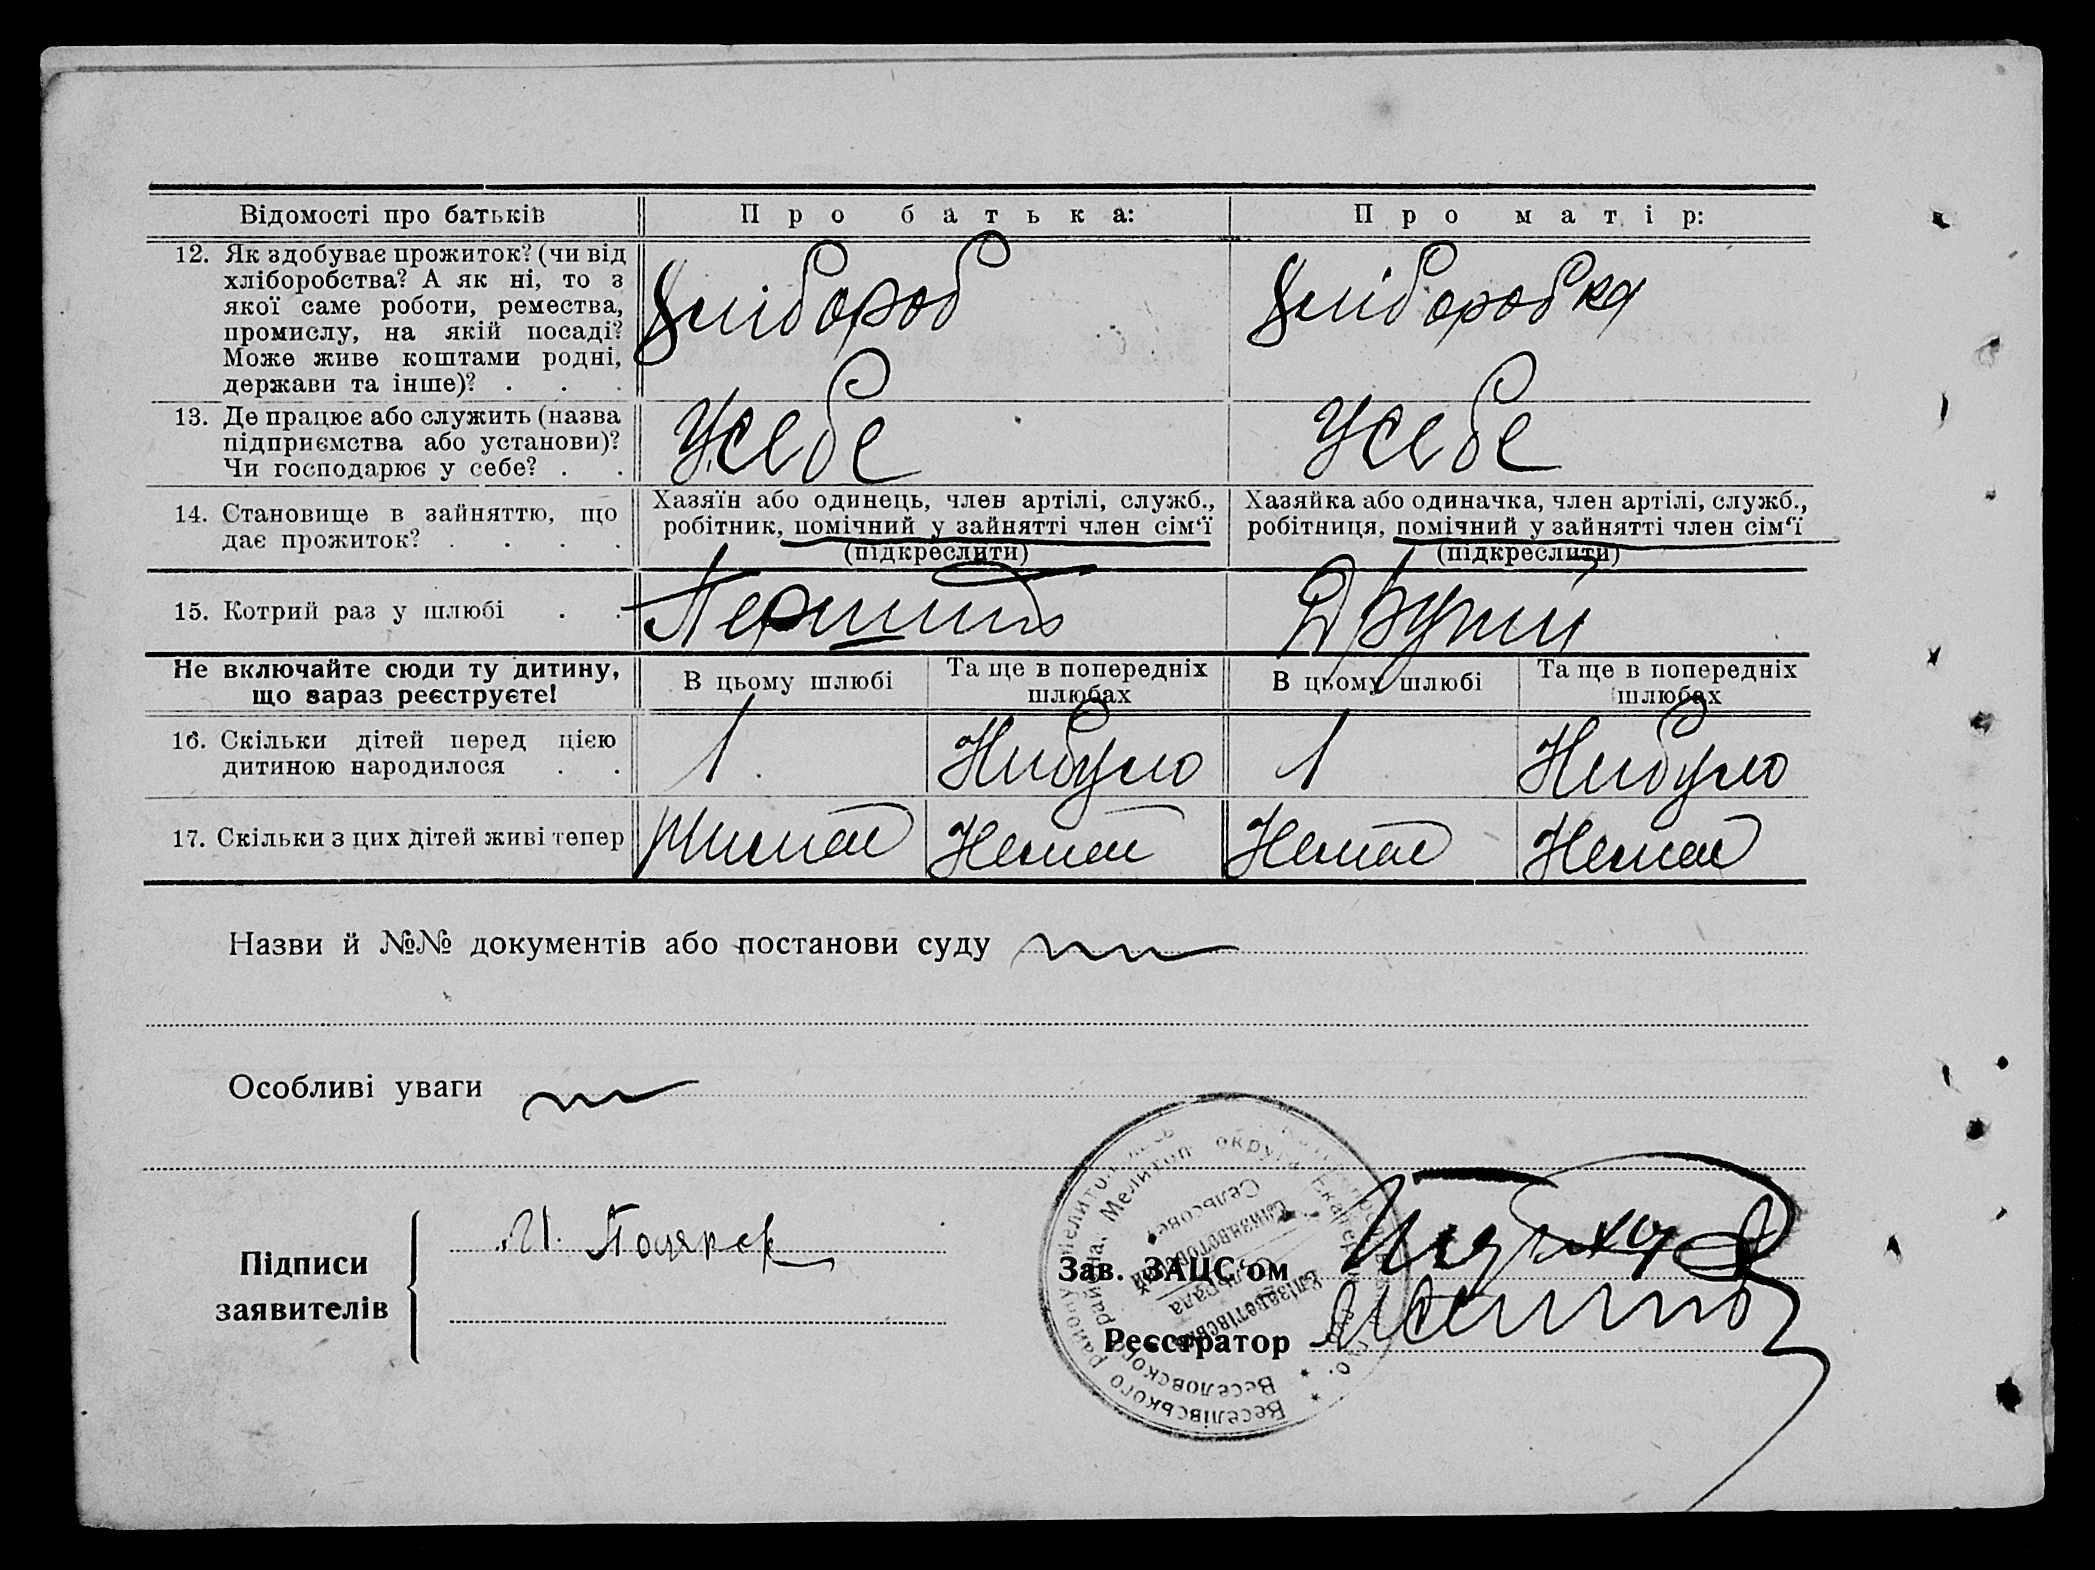 Відомості про батьків
Про батька:
Про матір:
12. Як здобуває прожиток? (чи від
хліборобства? А як ні, то з
якої саме роботи, ремества,
промислу, на якій посаді?
Може живе коштами родні,
держави та інше)? . . .
Хлібороб
Хлібборобка
13. Де працює або служить (назва
підприємства або установи)?
Чи господарює у себе? . .
Усебе
Усебе
14. Становище в зайняттю, що
дає прожиток? . . . .
Хазяїн або одинець, член артілі, служб.,
робітник, помічний у зайнятті член сім'ї
(підкреслити)
Хазяйка або одиначка, член артілі, служб.,
робітниця, помічний у зайнятті член сім'ї
(підкреслити)
15. Котрий раз у шлюбі . .
Перший
Другий
Не включайте сюди ту дитину,
що зараз реєструєте!
В цьому шлюбі
Та ще в попередніх
шлюбах
В цьому шлюбі
Та ще в попередніх
шлюбах
16. Скільки дітей перед цією
дитиною народилося . .
1
Нибуло
1
Нибуло
17. Скільки з цих дітей живі тепер
Нимає
Немає
Немає
Немає
Назви й №№ документів або постанови суду
Особливі уваги
Підписи
заявителів
Зав. ЗАЦС'ом
Реєстратор
Веселівського району Мелітоп
Веселовского района, Мелитоп. округа Екатер
Єлізаветівська
сільрада
Елизаветовский
Сельсовет